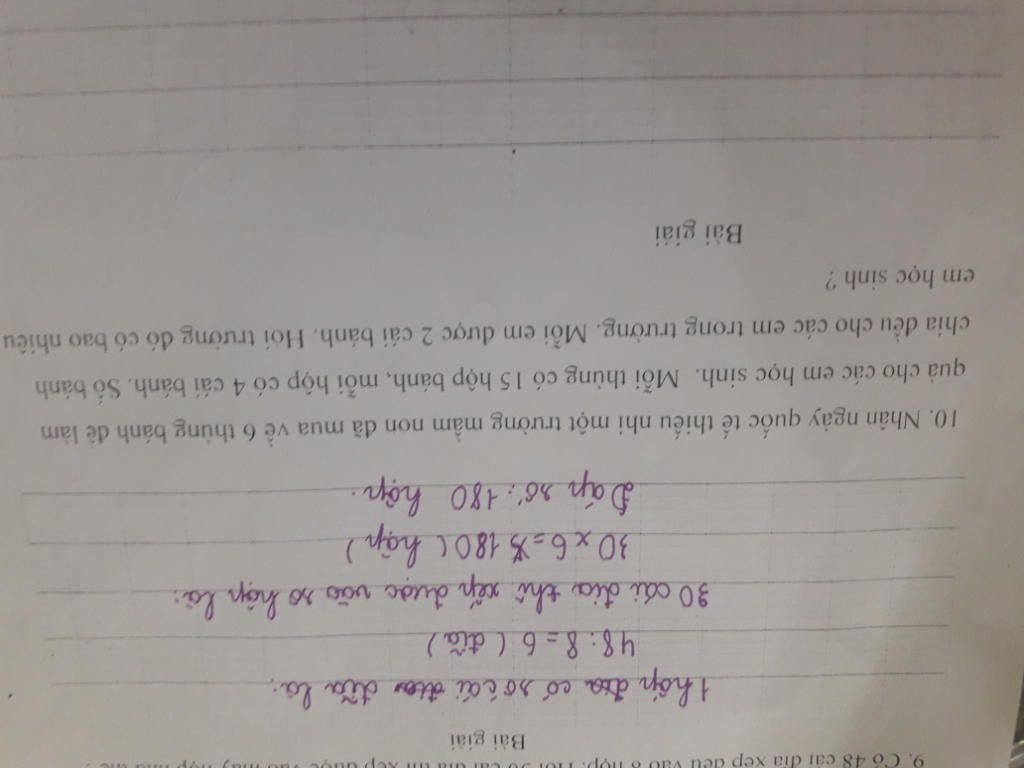 9. Có 48 cái đĩa xếp đều vào 8 hộp. Hỏi 30 cái đĩa thì xếp được vào mấy hộp như thế ?
Bài giải
1 hộp có số cái đĩa là:
48 : 8 = 6 (đĩa)
30 cái đĩa thì xếp được vào số hộp là:
30 x 6 = 180 (hộp)
Đáp số: 180 hộp.
10. Nhân ngày quốc tế thiếu nhi một trường mầm non đã mua về 6 thùng bánh để làm
quà cho các em học sinh. Mỗi thùng có 15 hộp bánh, mỗi hộp có 4 cái bánh. Số bánh
chia đều cho các em trong trường. Mỗi em được 2 cái bánh. Hỏi trường đó có bao nhiêu
em học sinh ?
Bài giải